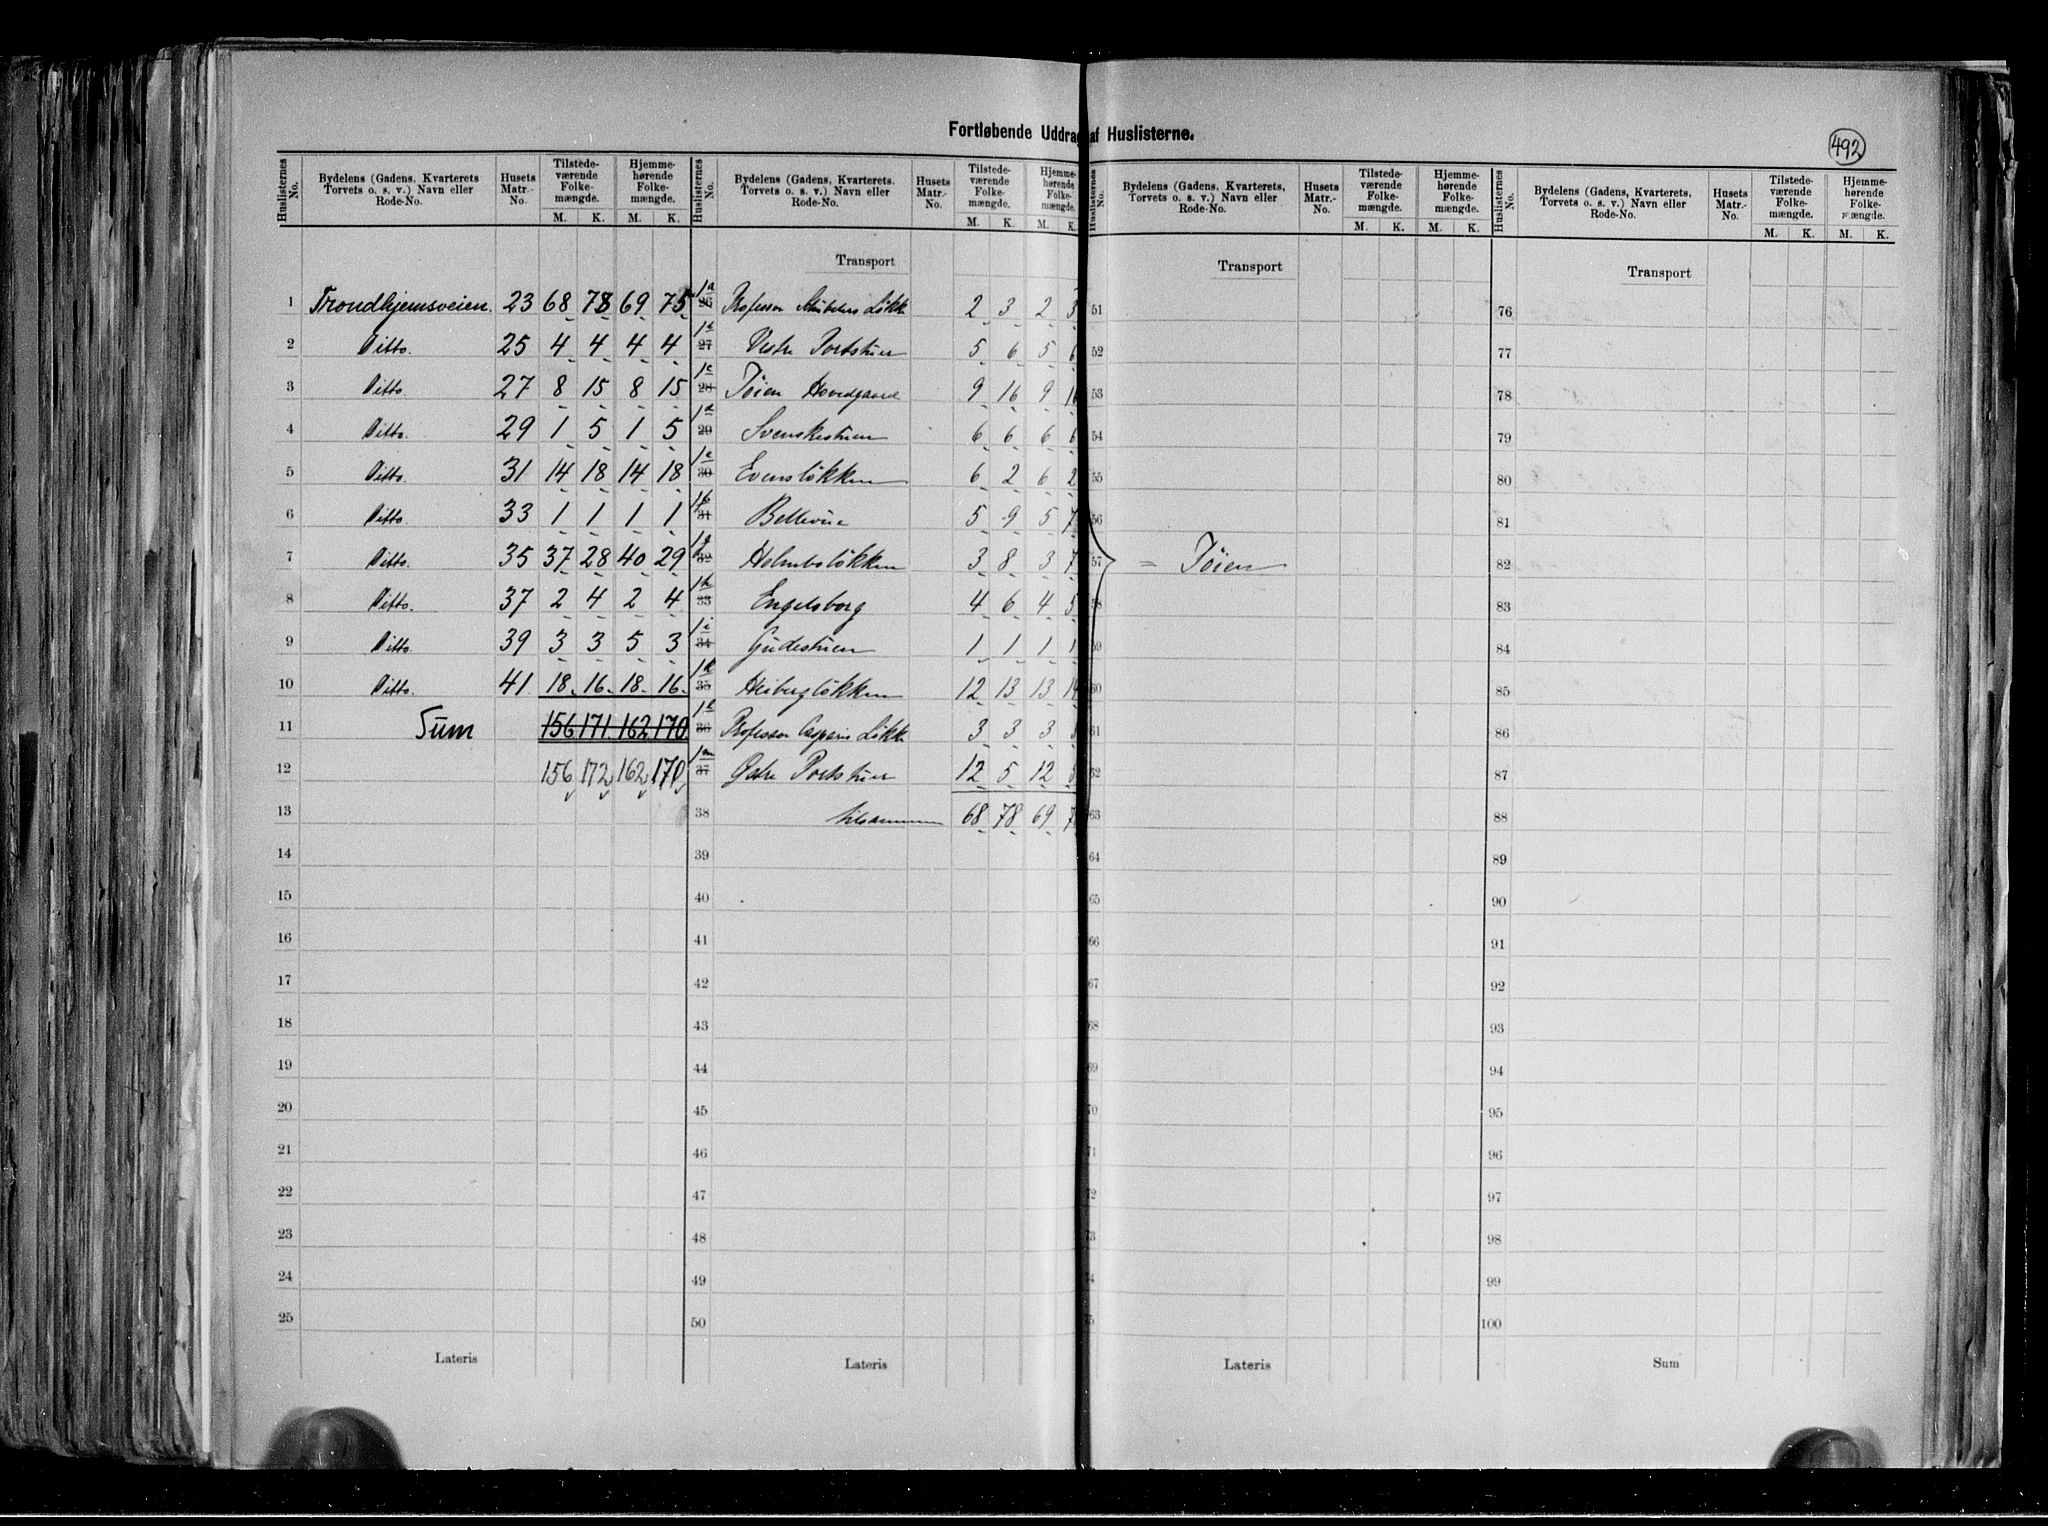 Fortløbende Uddrag af Huslisterne.
492
Huslisternes No. | Bydelens (Gadens, Kvarterets, Torvets o. s. v.) Navn eller Rode-No. | Husets Matr.-No. | Tilstedeværende Folkemængde. M. K. | Hjemmehørende Folkemængde. M. K.
1 Trondhjemsveien. 23 68 78 69 75
2 Ditto. 25 4 4 4 4
3 Ditto. 27 8 15 8 15
4 Ditto. 29 1 5 1 5
5 Ditto. 31 14 18 14 18
6 Ditto. 33 1 1 1 1
7 Ditto. 35 37 28 40 29
8 Ditto. 37 2 4 2 4
9 Ditto. 39 3 3 5 3
10 Ditto. 41 18 16 18 16
11 Sum 156 171 162 170
12 156 172 162 170
13
14
15
16
17
18
19
20
21
22
23
24
25
Lateris
Huslisternes No. | Bydelens (Gadens, Kvarterets, Torvets o. s. v.) Navn eller Rode-No. | Husets Matr.-No. | Tilstedeværende Folkemængde. M. K. | Hjemmehørende Folkemængde. M. K.
Transport
26 1a Professor Løkke 2 3 2 3
27 1b Vestre Portstuen 5 6 5 6
28 1c Tøien Hovedgaard 9 16 9 16
29 1d Svenskestuen 6 6 6 6
30 1e Evensløkken 6 2 6 2
31 1f Bellevue 5 9 5 7
32 1g Holmboløkken 3 8 3 7
33 1h Engelsborg 4 6 4 5
34 1i Gudestuen 1 1 1 1
35 1k Heibergløkken 12 13 13 14
36 1l Professor Casparis Løkke 3 3 3
37 1m Østre Portstuen 12 5 12
38 tilsammen 68 78 69
39
40
41
42
43
44
45
46
47
48
49
50
Lateris
Huslisternes No. | Bydelens (Gadens, Kvarterets, Torvets o. s. v.) Navn eller Rode-No. | Husets Matr.-No. | Tilstedeværende Folkemængde. M. K. | Hjemmehørende Folkemængde. M. K.
Transport
51
52
53
54
55
56
57 = Tøien
58
59
60
61
62
63
64
65
66
67
68
69
70
71
72
73
74
75
Lateris
Huslisternes No. | Bydelens (Gadens, Kvarterets, Torvets o. s. v.) Navn eller Rode-No. | Husets Matr.-No. | Tilstedeværende Folkemængde. M. K. | Hjemmehørende Folkemængde. M. K.
Transport
76
77
78
79
80
81
82
83
84
85
86
87
88
89
90
91
92
93
94
95
96
97
98
99
100
Sum